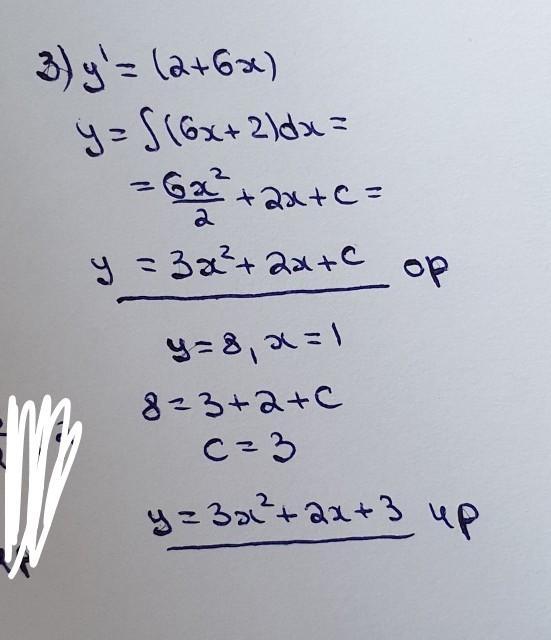 3) y' = (2+6x)
y = ∫(6x+2)dx =
= 6x²/2 + 2x + c =
y = 3x² + 2x + c ор
y = 8, x = 1
8 = 3 + 2 + c
c = 3
y = 3x² + 2x + 3 чр